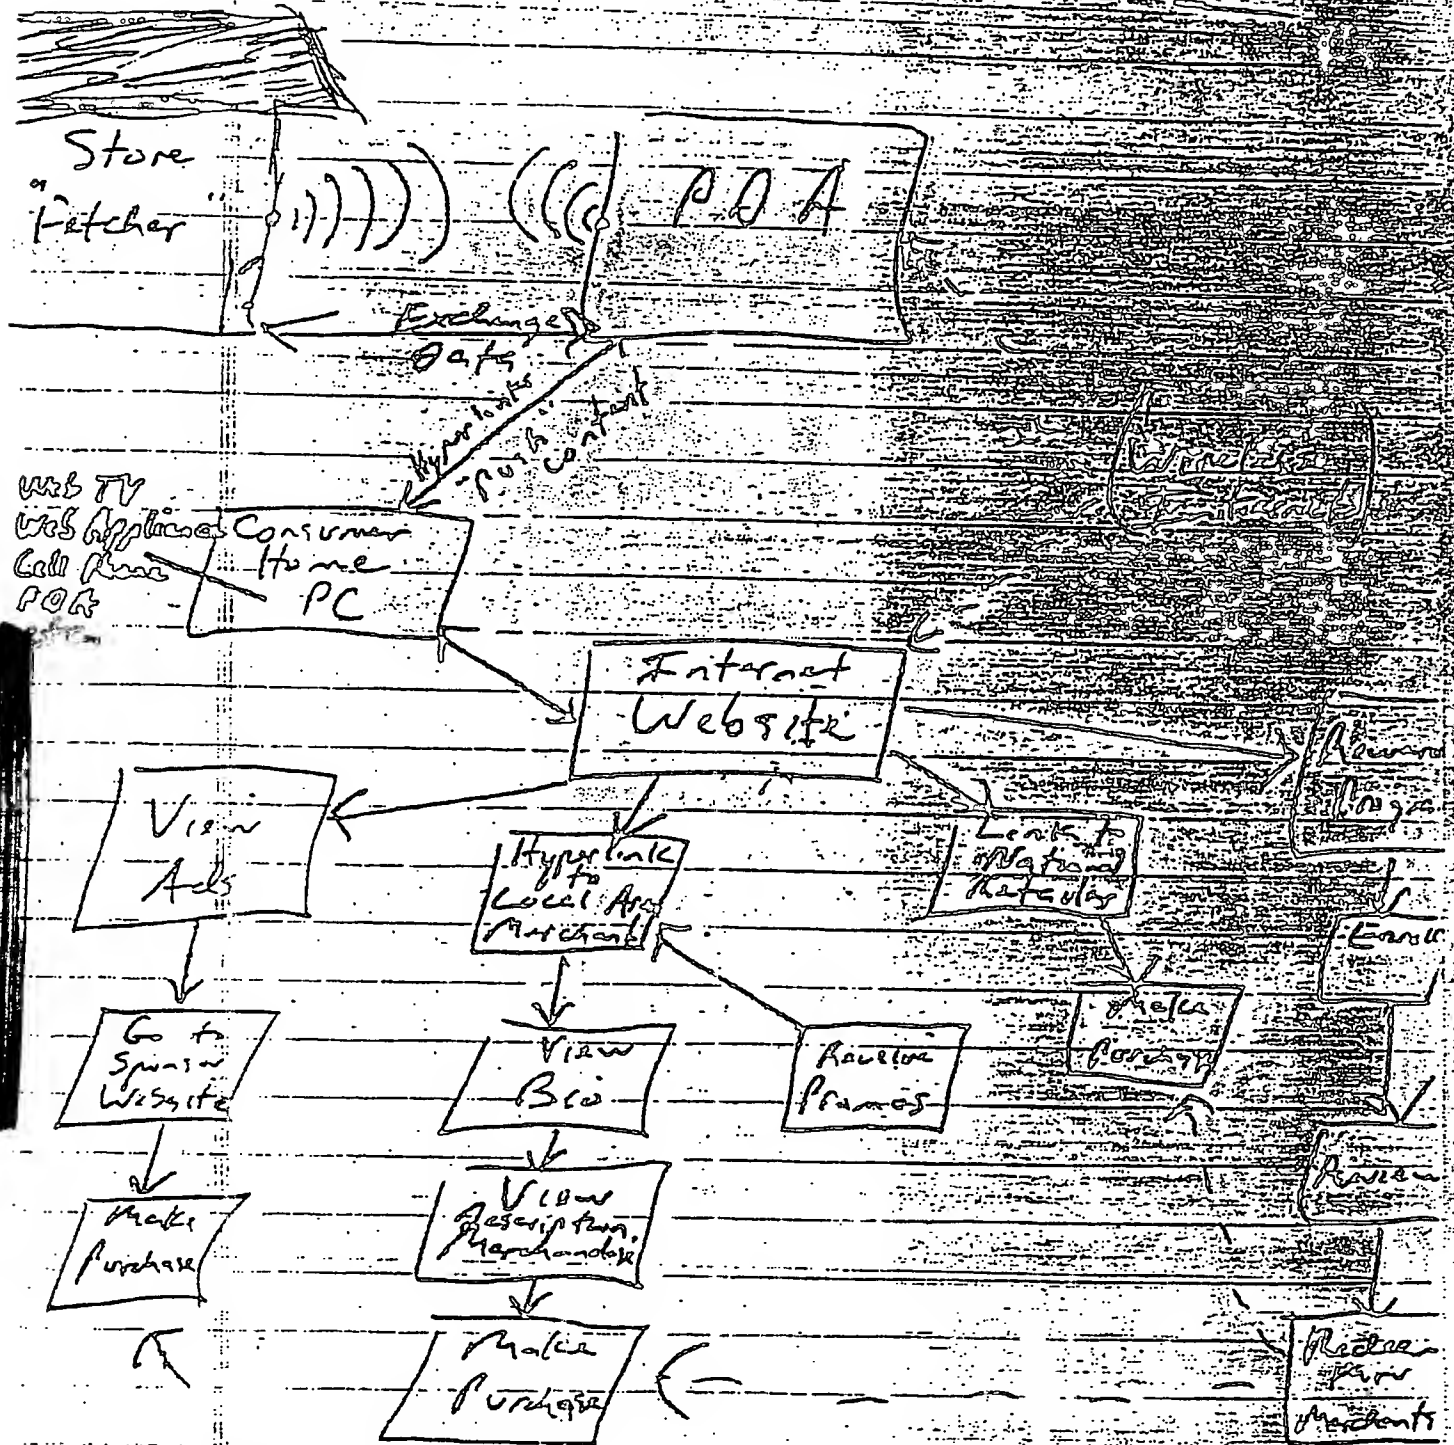 Store
"Fetcher"
PDA
Exchange
Data
Hyperlinks
"Push"
Content
Web TV
Web Appliance
Cell Phone
PDA
Consumer
Home
PC
Wireless
Internet
Website
View
Ads
Hyperlink
to
Local Area
Merchant
Link to
National
Reward
Enroll
Go to
Sponsor
Website
View
Bio
Receive
Promos
Make
Purchase
Review
Make
Purchase
View
Description
Merchandise
Make
Purchase
Merchants